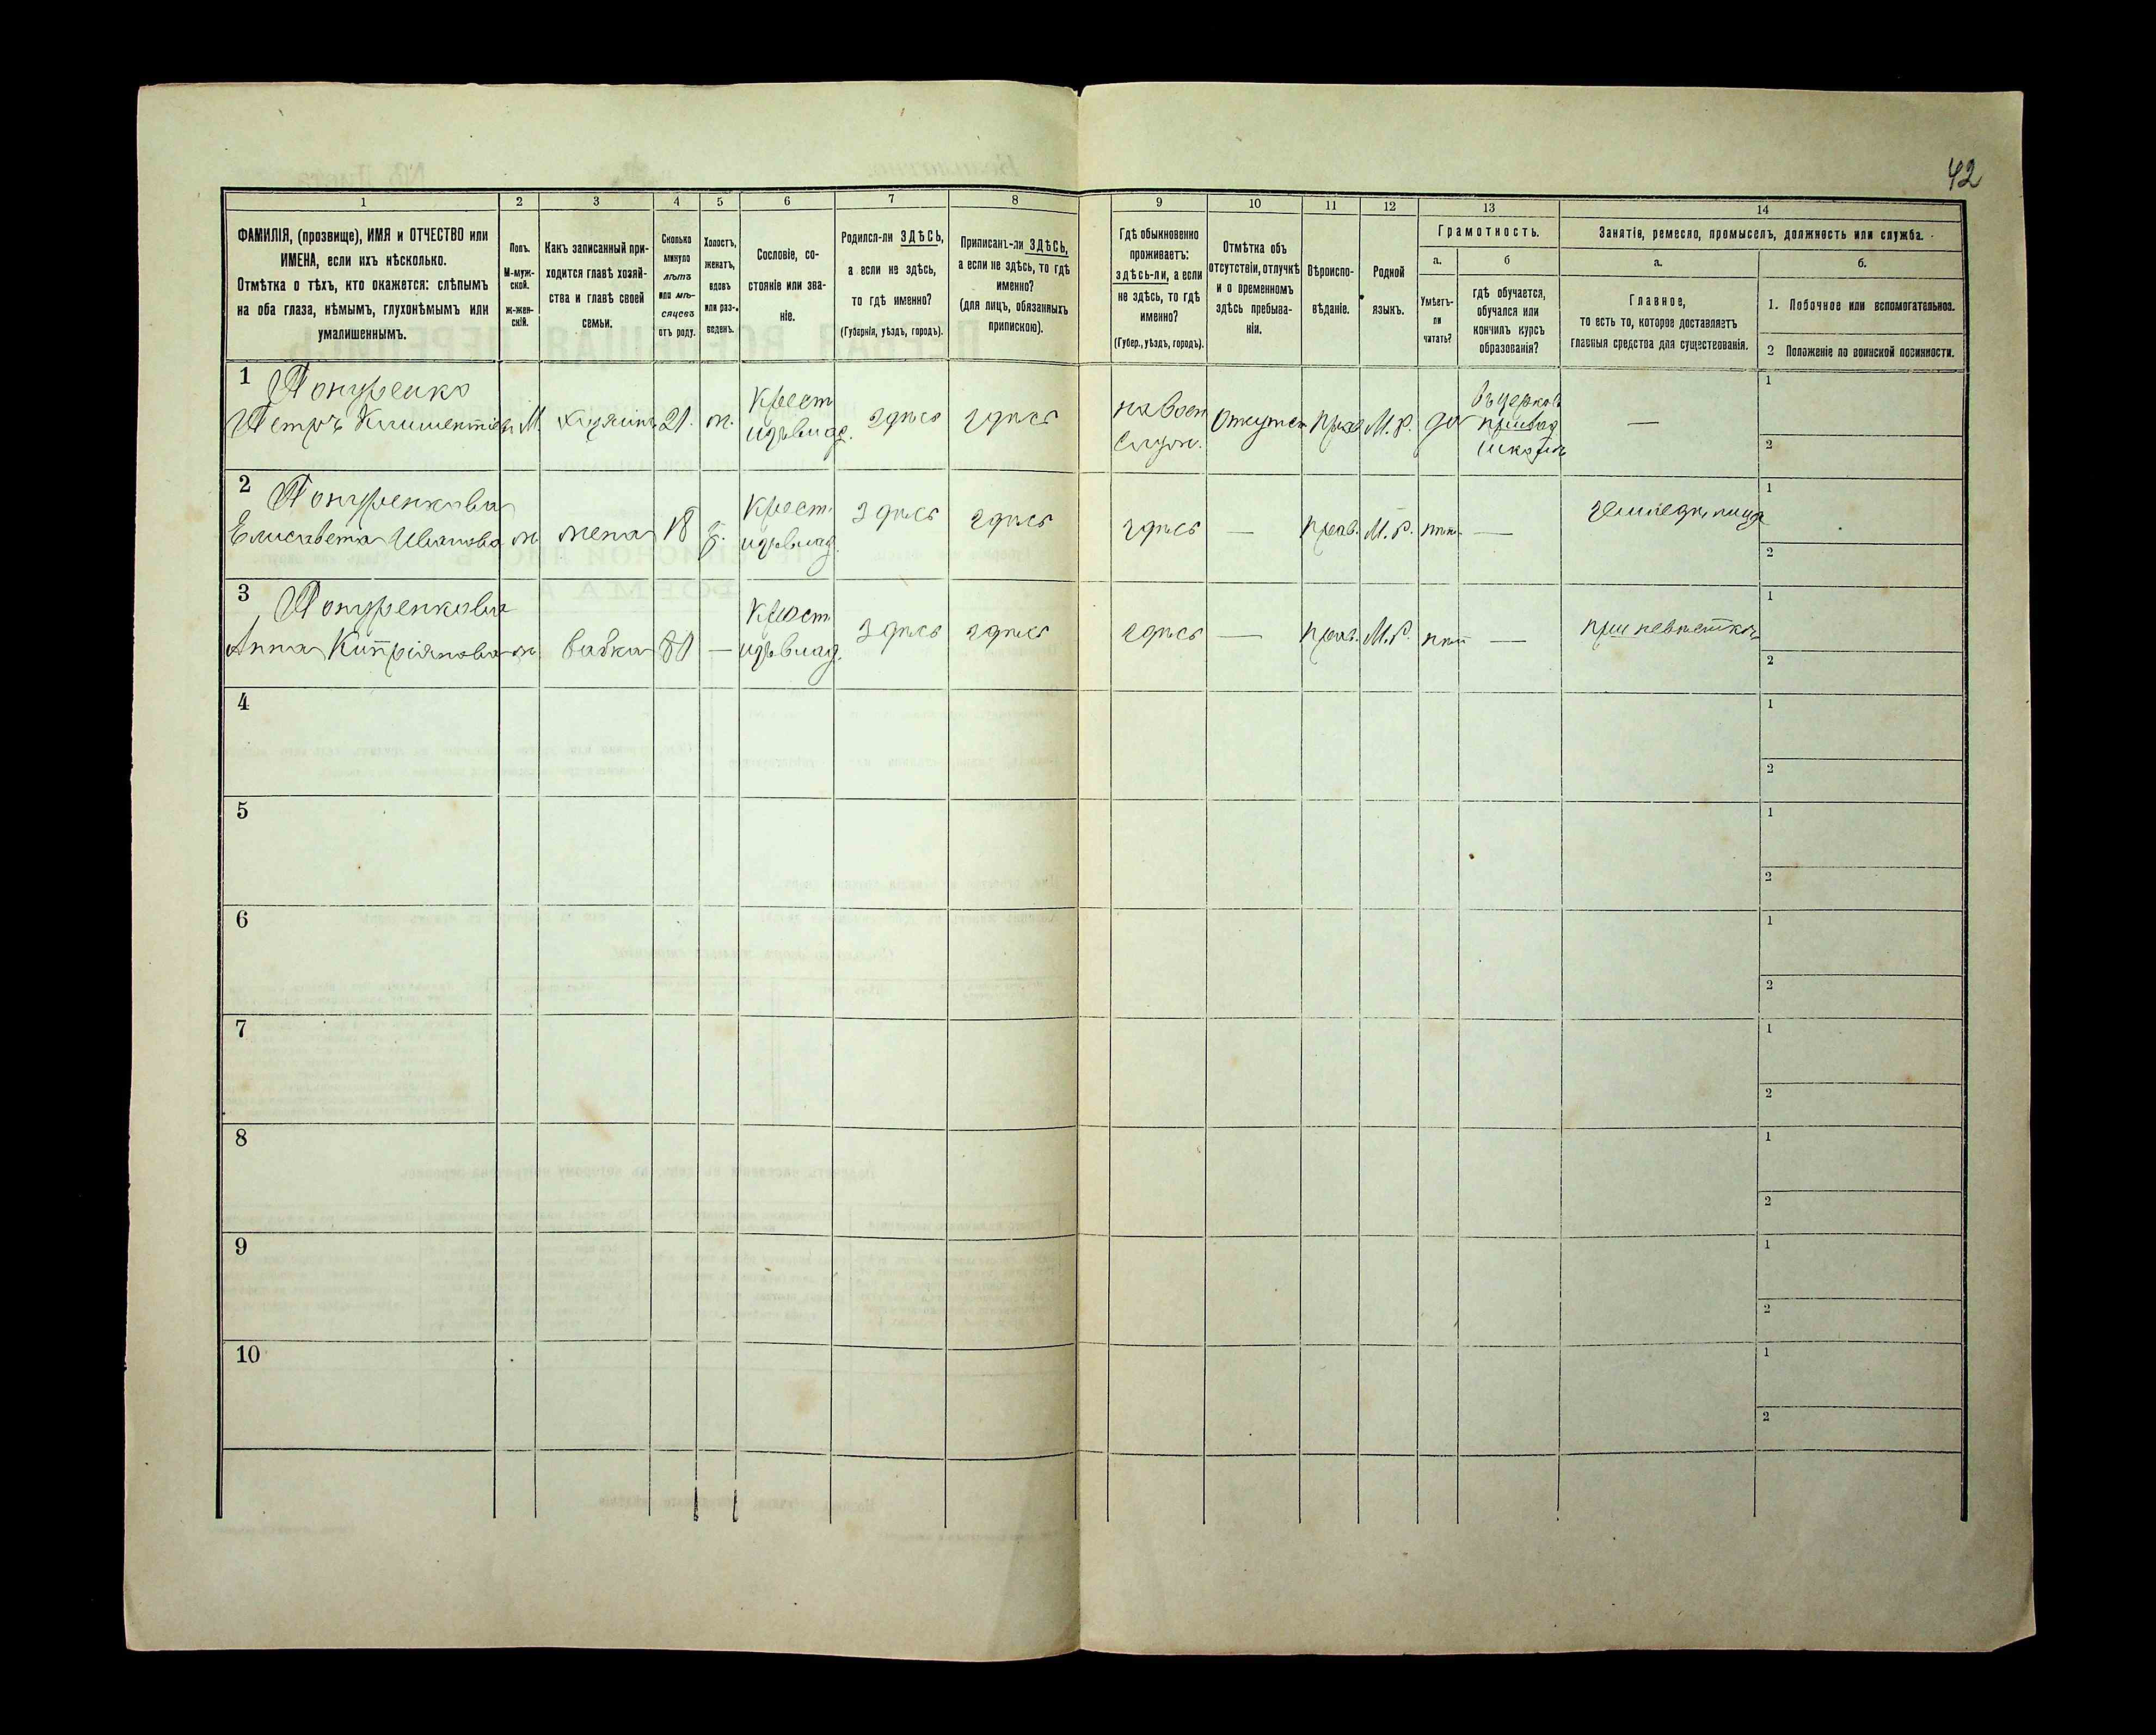 42
1 2 3 4 5 6 7 8 9 10 11 12 13 14
ФАМИЛІЯ, (прозвище), ИМЯ и ОТЧЕСТВО или
ИМЕНА, если ихъ нѣсколько.
Отмѣтка о тѣхъ, кто окажется: слѣпымъ
на оба глаза, нѣмымъ, глухонѣмымъ или
умалишеннымъ.
Полъ.
М-муж-
ской.
Ж-жен-
скій.
Какъ записанный при-
ходится главѣ хозяй-
ства и главѣ своей
семьи.
Сколько
минуло
лѣтъ
или мѣ-
сяцевъ
отъ роду.
Холостъ,
женатъ,
вдовъ
или раз-
веденъ.
Сословіе, со-
стояніе или зва-
ніе.
Родился-ли ЗДѢСЬ,
а если не здѣсь,
то гдѣ именно?
(Губернія, уѣздъ, городъ).
Приписанъ-ли ЗДѢСЬ,
а если не здѣсь, то гдѣ
именно?
(для лицъ, обязанныхъ
припискою).
Гдѣ обыкновенно
проживаетъ:
здѣсь-ли, а если
не здѣсь, то гдѣ
именно?
(Губер., уѣздъ, городъ).
Отмѣтка объ
отсутствіи, отлучкѣ
и о временномъ
здѣсь пребыва-
ніи.
Вѣроиспо-
вѣданіе.
Родной
языкъ.
Грамотность.
а.
Умѣетъ-
ли
читать?
б
гдѣ обучается,
обучался или
кончилъ курсъ
образованія?
Занятіе, ремесло, промыселъ, должность или служба.
а.
Главное,
то есть то, которое доставляетъ
главныя средства для существованія.
б.
1. Побочное или вспомогательное.
2 Положеніе по воинской повинности.
1 Понуренко
Петръ Климентіевъ М. хозяинъ 21. ж. Крест. издѣвлад. здѣсь здѣсь
на воен. служ. Отсутст. прав. М. Р. да въ церков. приход. школѣ —
1
2
2 Понуренкова
Елисавета Иванова ж. жена 18 з. Крест. издѣвлад. здѣсь здѣсь
здѣсь — прав. М. Р. нѣтъ —
1
2
3 Понуренкова
Анна Кипріянова ж. бабка 80 — Крест. издѣвлад. здѣсь здѣсь
здѣсь — прав. М. Р. нѣтъ — при невѣсткѣ
1
2
4
1
2
5
1
2
6
1
2
7
1
2
8
1
2
9
1
2
10
1
2